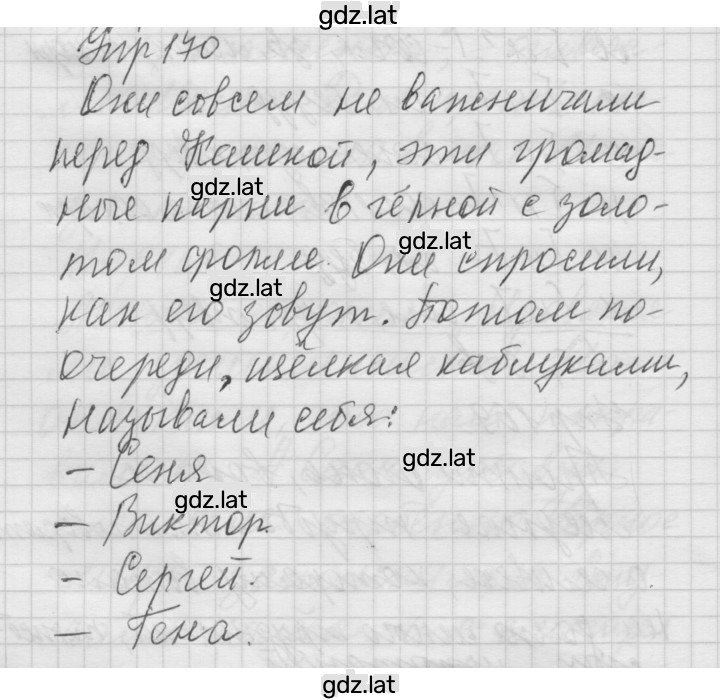 gdz.lat
Упр 170
Они совсем не важничали
перед Колькой, эти громад-
gdz.lat
ные парни в чёрной с золо-
gdz.lat
том форме. Они спросили,
gdz.lat
как его зовут. Потом по-
очереди, щёлкая каблуками,
называли себя:
- Сеня
gdz.lat
gdz.lat
- Виктор.
- Сергей.
- Гена.
gdz.lat